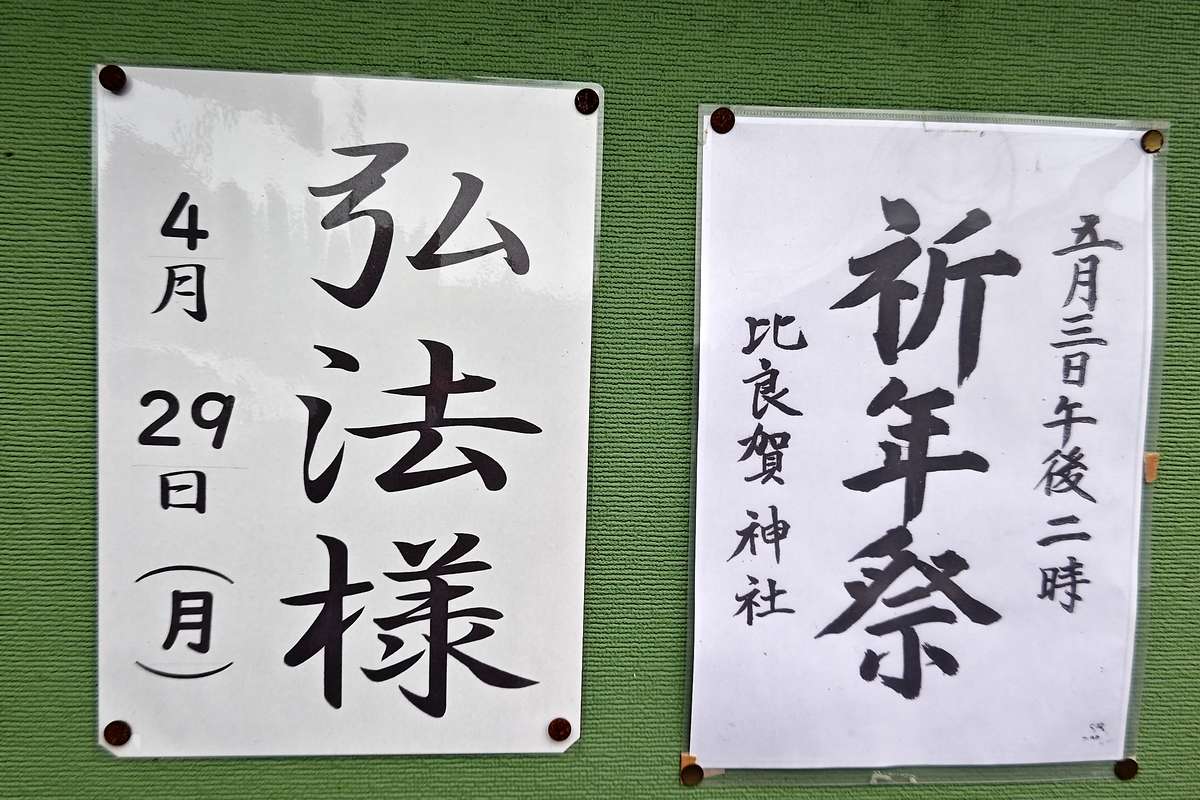 弘法様
4月29日(月)
五月三日午後二時
祈年祭
比良賀神社